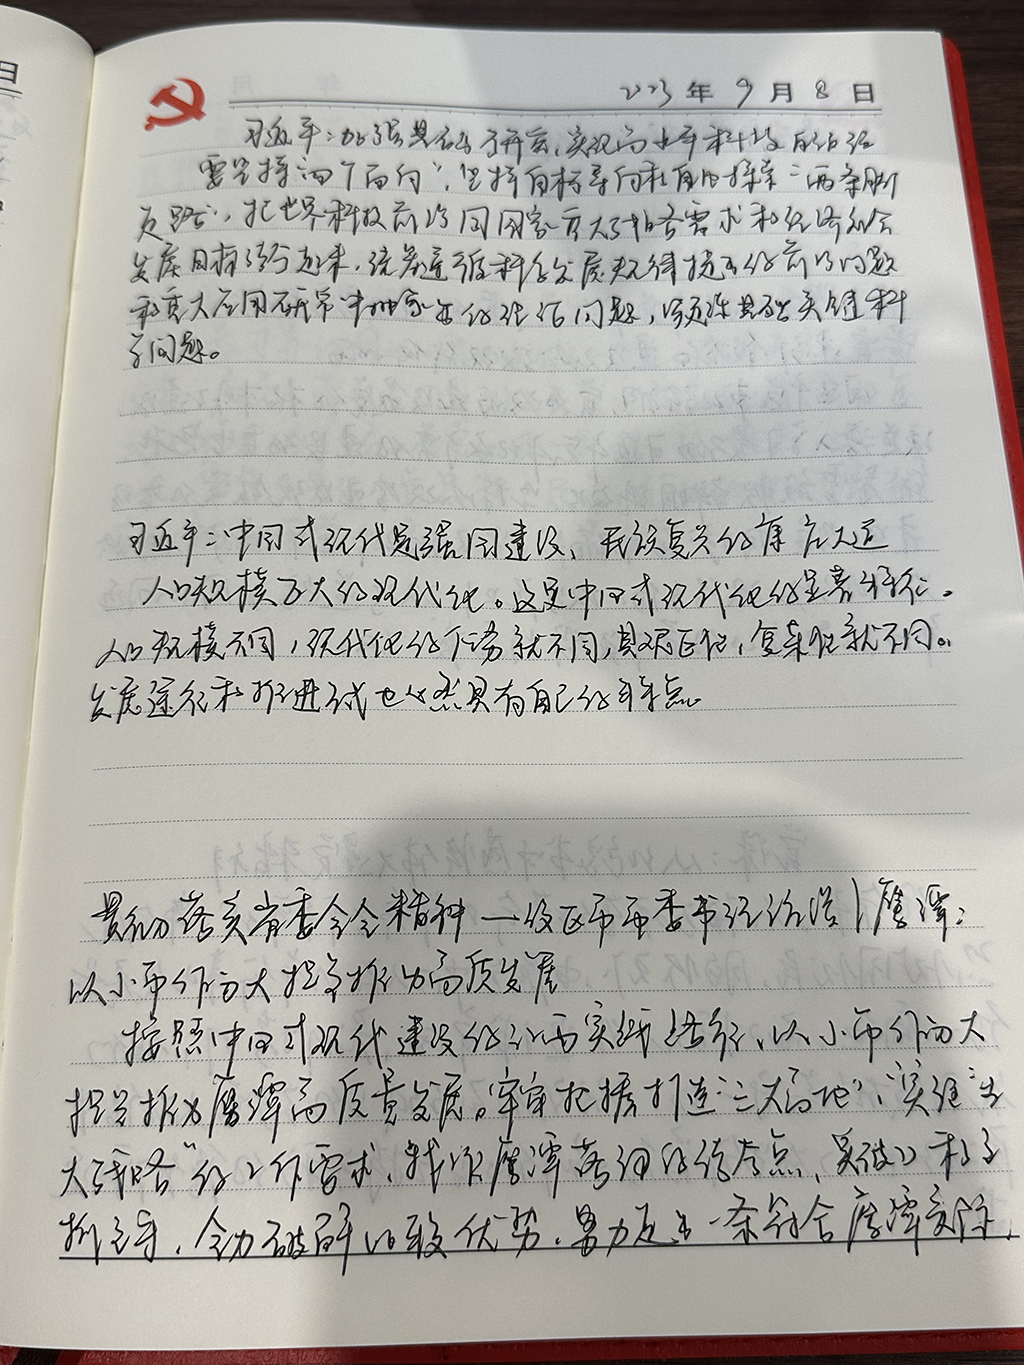 日
2023年9月8日
习近平：加强基础研究，实现高水平科技自立自强
要坚持“四个面向”，坚持目标导向和自由探索“两条腿
走路”，把世界科技前沿同国家重大战略需求和经济社会
发展目标结合起来，统筹遵循科学发展规律提出的前沿问题
和重大应用研究中抽象出的理论问题，凝练基础关键科
学问题。
习近平：中国式现代是强国建设、民族复兴的康庄大道
人口规模巨大的现代化。这是中国式现代化的显著特征。
人口规模不同，现代化的任务就不同，其艰巨性，复杂性就不同。
发展途径和推进式也必然具有自己的特点。
贯彻落实省委全会精神 — 设区市市委书记纵谈 | 鹰潭：
以小市作为大担当推动高质发展
按照中国式现代建设的江西实践路径，以小市作为大
担当推动鹰潭高质量发展。牢牢把握打造“三大高地”、“实施五
大战略”的工作要求，找准鹰潭落细的结合点、突破口和
抓手，全力破解比较优势，努力走出一条符合鹰潭实际，